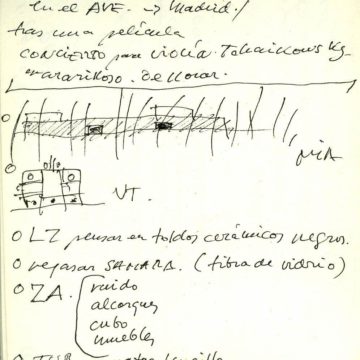 en el AVE. → Madrid./
tras una película
CONCIERTO para violín. Tchaikowsky
maravilloso. De llorar.
MIA
VT.
O LZ pensar en toldos cerámicos negros.
O repasar SAMARA. (fibra de vidrio)
O ZA. ruido
alcorques
cubo
muebles